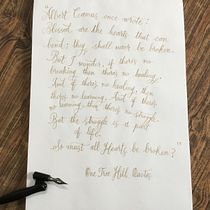 "Albert Camus once wrote:
Blessed are the hearts that can
bend; they shall never be broken.
But I wonder, if there's no
breaking then there's no healing,
And if there's no healing, then
there's no learning. And if there's
no learning, then there's no struggle.
But the struggle is a part
of life.
So must all Hearts be broken?"
One Tree Hill Quote